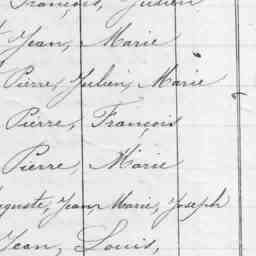 François, Julien
Jean, Marie
Pierre, Julien, Marie
Pierre, François
Pierre, Marie
Auguste, Jean Marie, Joseph
Jean, Louis,